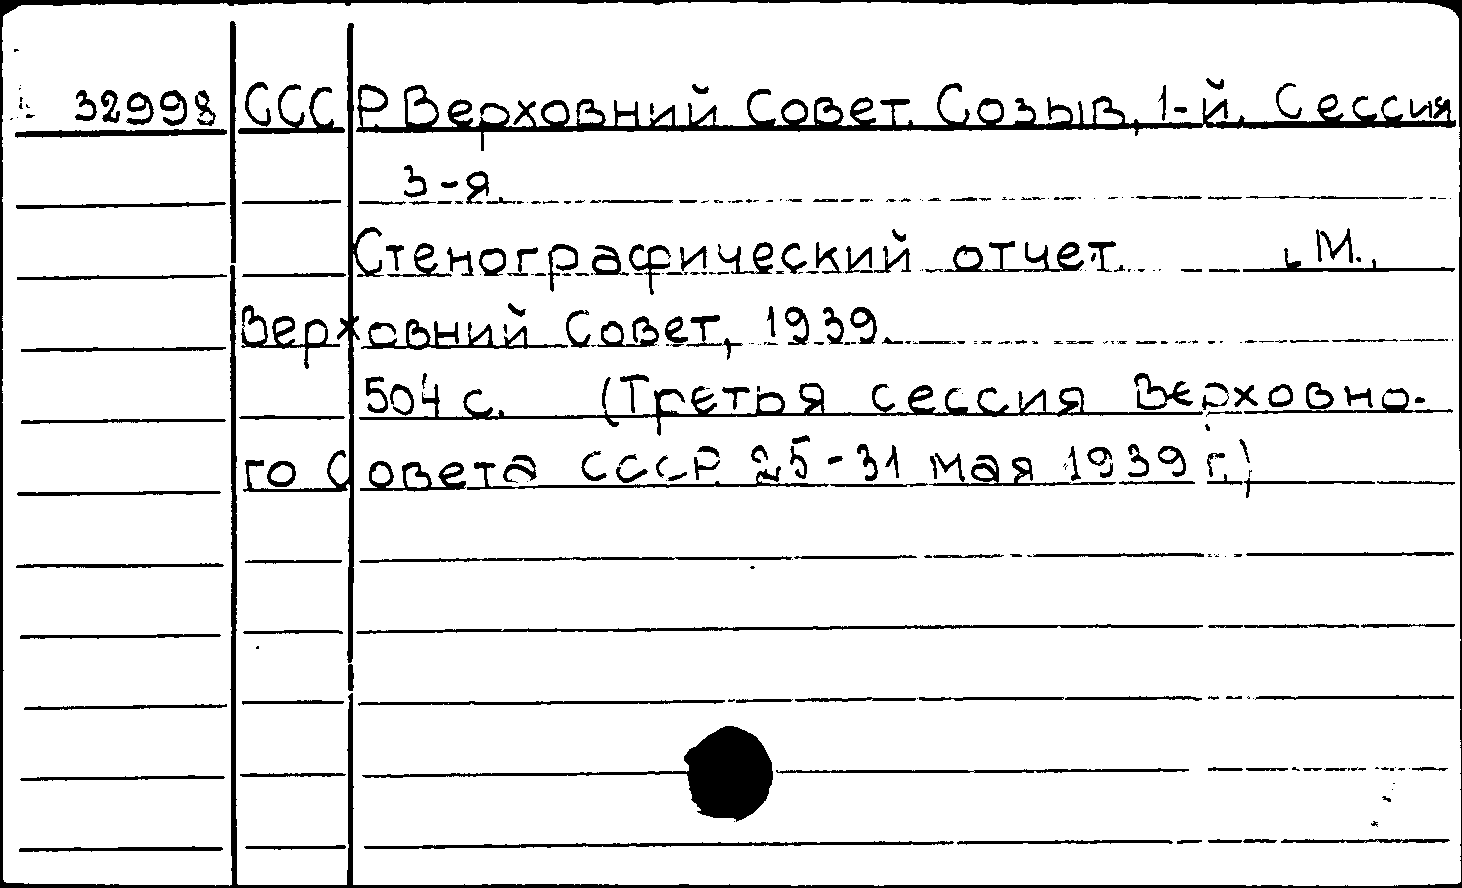 32998 СССР. Верховний Совет. Созыв, 1-й. Сессия
3-я.
Стенографический отчет. М.,
Верховний Совет, 1939.
504 с. (Третья сессия Верховно-
го Совета СССР. 25-31 мая 1939 г.)